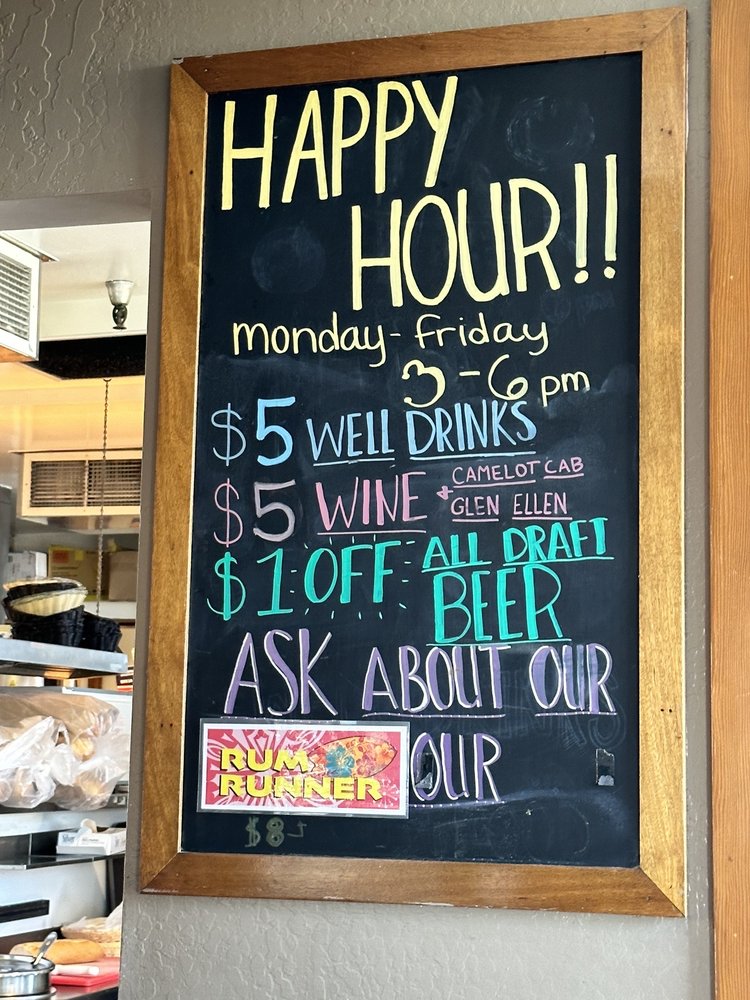 HAPPY
HOUR!!
monday-friday
3-6 pm
$5 WELL DRINKS
$5 WINE + CAMELOT CAB
GLEN ELLEN
$1 OFF ALL DRAFT
BEER
ASK ABOUT OUR
RUM
RUNNER
OUR
$8